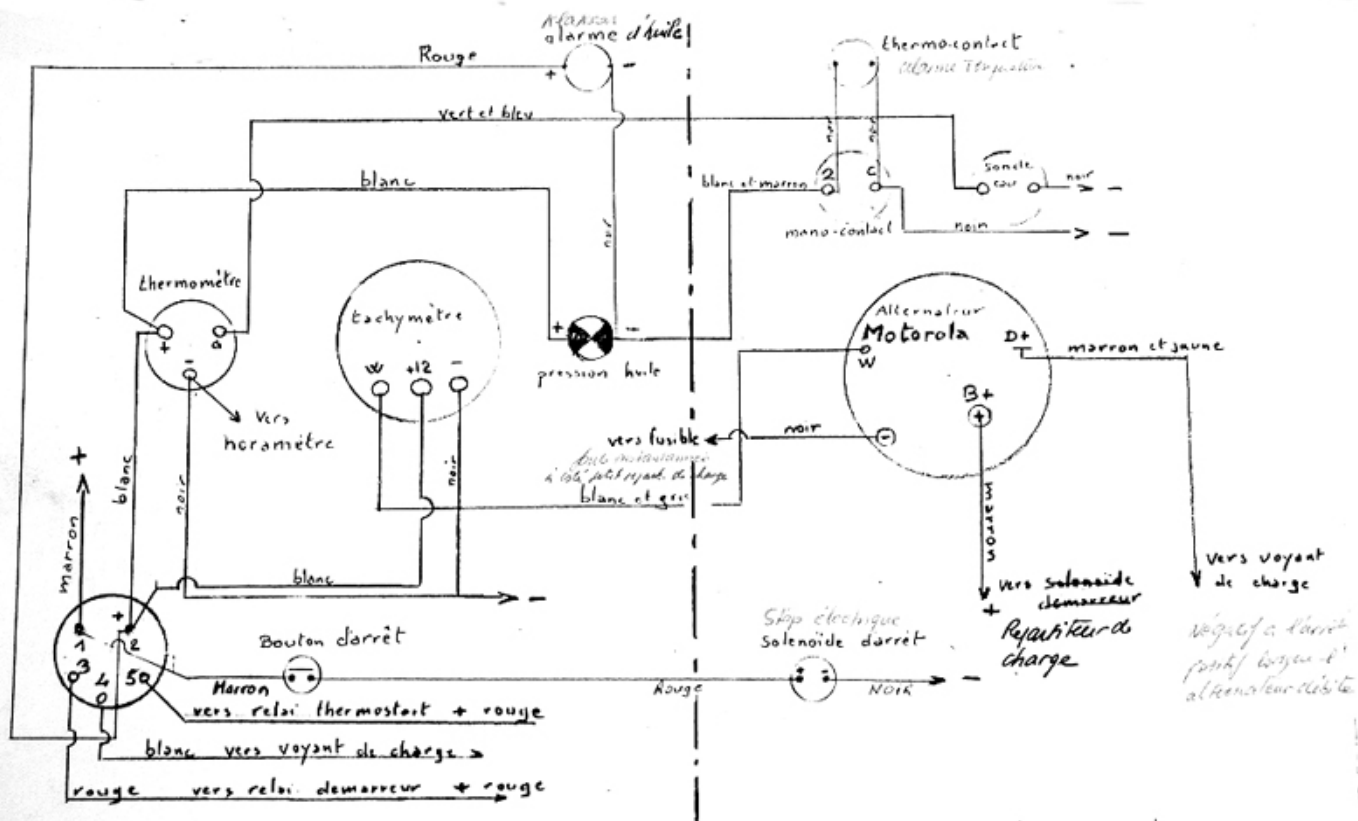 alarme d'huile
+ -
Rouge
thermo-contact
vert et bleu
noir
noir
blanc
blanc et marron
2 C
sonde
eau
noir
-
noir
mano-contact
noir
-
thermomètre
+
-
tachymètre
W +12 -
+ -
pression huile
Alternateur
Motorola
W
D+
B+
+
-
marron et jaune
vers
horamètre
vers fusible
noir
à côté petit repart. de charge
blanc et gris
+
marron
blanc
noir
noir
marron
blanc
-
vers solenoïde
demarreur
+
Repartiteur de
charge
vers voyant
de charge
Négatif a l'arrêt
positif lorsque l'
alternateur débite
+
1 2
3 4 5
Bouton d'arrêt
Stop électrique
solenoïde d'arrêt
Marron
Rouge
NOIR
-
vers relai thermostart + rouge
blanc vers voyant de charge
rouge vers relai demarreur + rouge